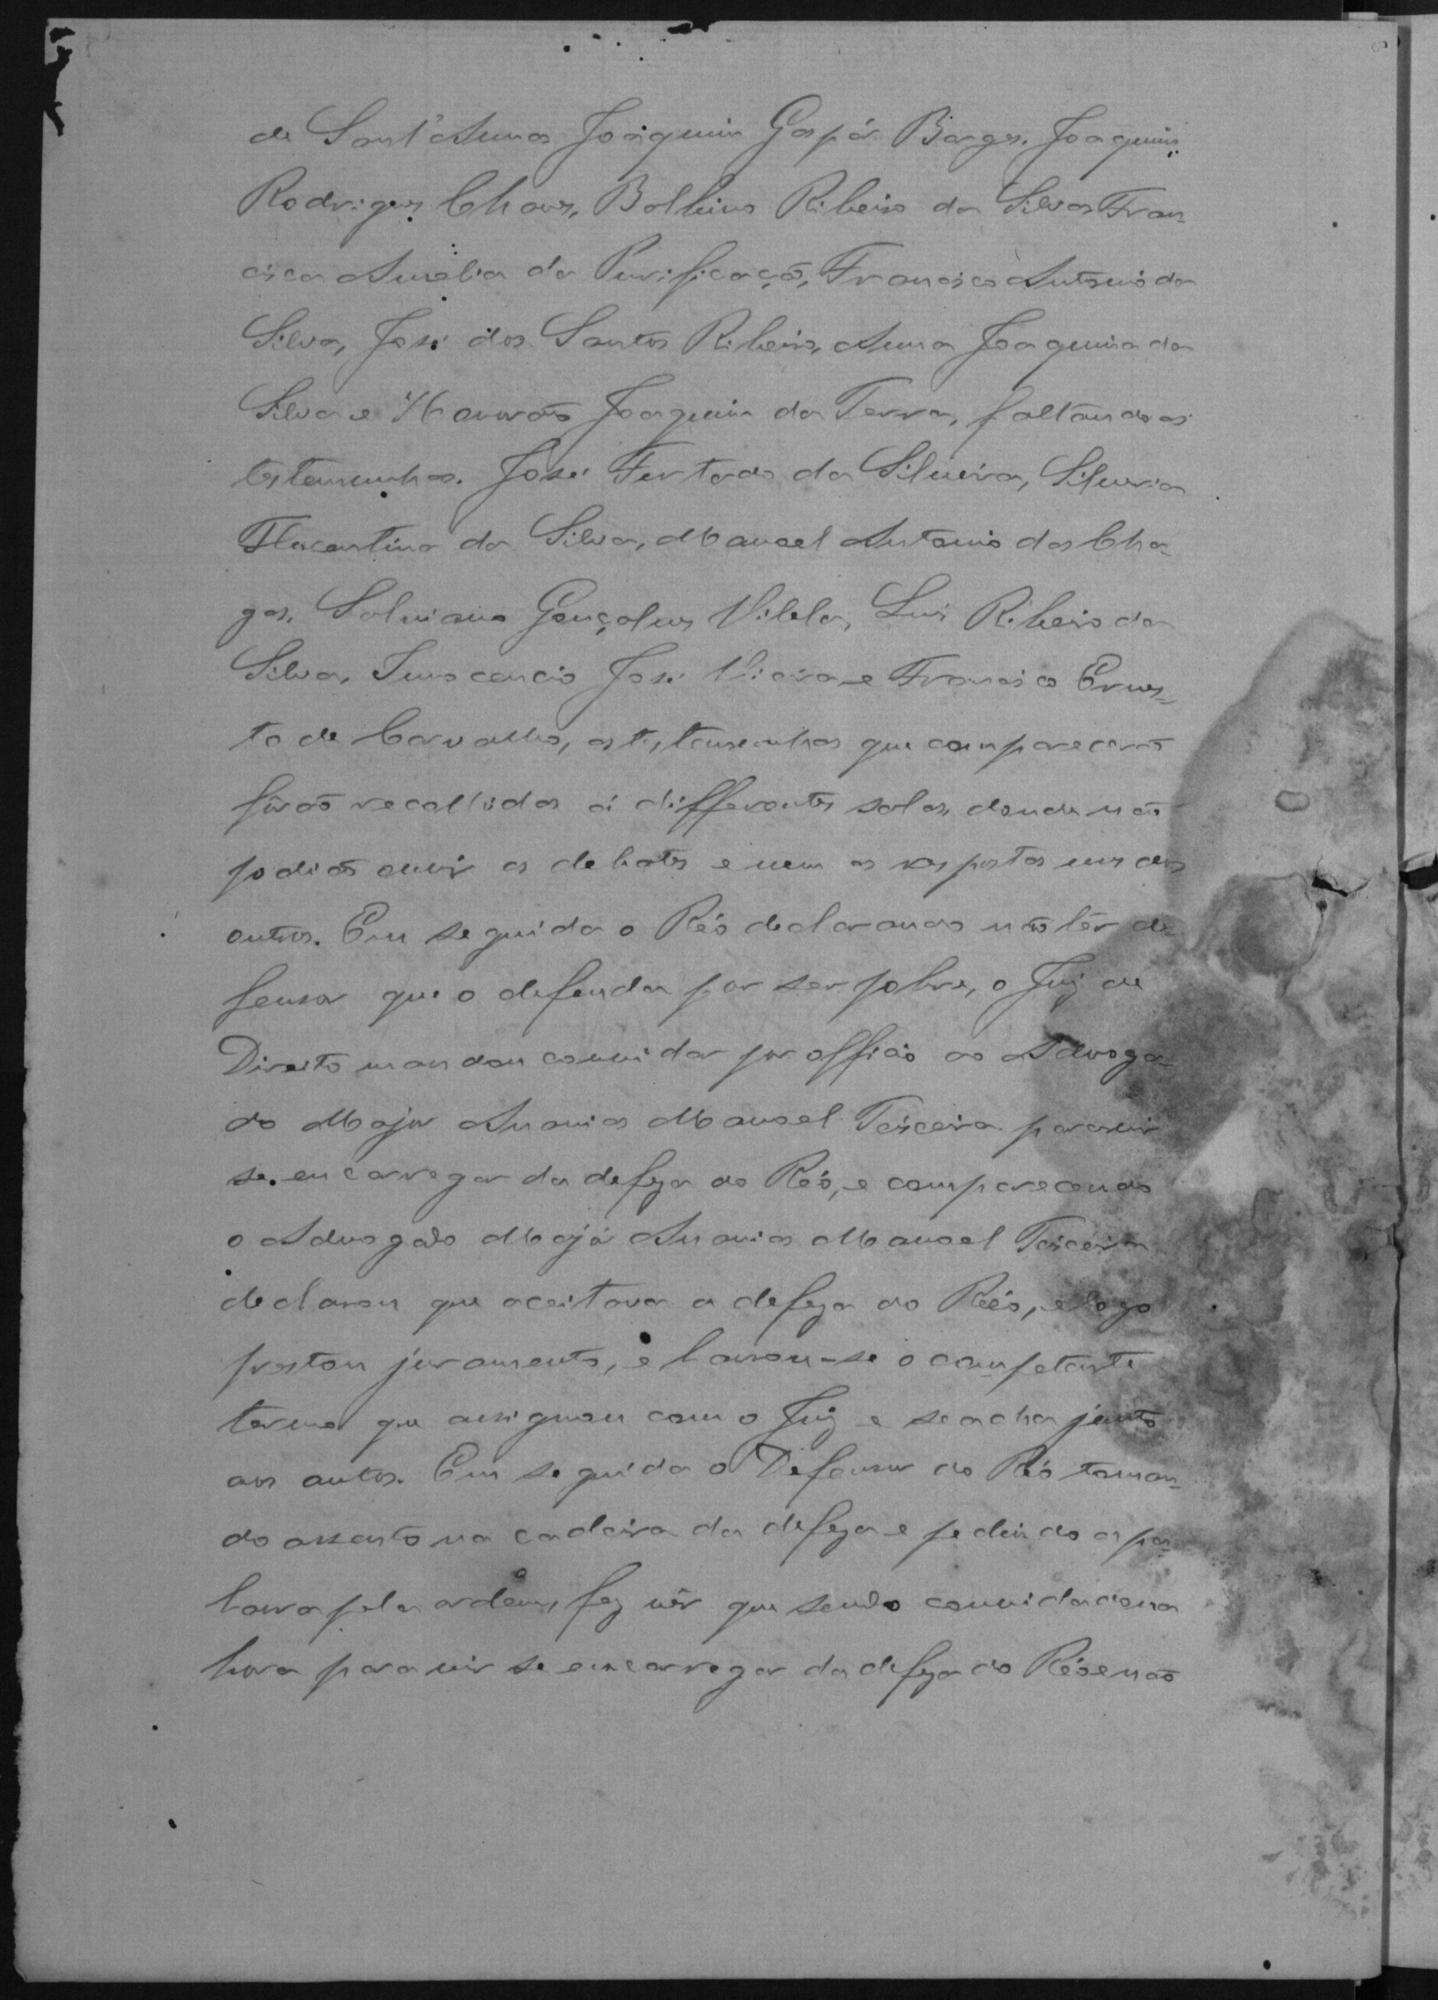 de Sant'Anna Joaquim Gaspár Borges, Joaquim
Rodrigues Chaves, Balbino Ribeiro da Silva Fran-
cisca Aurelia da Purificação, Francisco Antonio da
Silva, José dos Santos Ribeiro, Anna Joaquina da
Silva e Joaquim da Terra, faltando as
testemunhas. José Furtado da Silveira, Silveria
Florentina da Silva, Manoel Antonio das Cha-
gas, Salviano Gonçalves Vilela, Luis Ribeiro da
Silva, Innocencio José Vieira e Francisco Ernes-
to de Carvalho, as testemunhas que comparecerão
fôrão recolhidas á differentes salas, donde não
podião ouvir os debates e nem as respostas uns dos
outros. Em seguida o Réo declarando não têr de-
fensor que o defenda por ser pobre, o Juiz de
Direito mandou convidar por officio ao Advoga-
do Major Ananias Manoel Teixeira para vir
se encarregar da defeza do Réo, e comparecendo
o Advogado Majór Ananias Manoel Teixeira
declarou que aceitava a defeza do Réo, e logo
prestou juramento, e lavrou-se o competente
termo que assignou com o Juiz e se acha junto
aos autos. Em seguida o Defensor do Réo toman-
do assento na cadeira da defeza e pedindo a pa-
lavra pela ordem, fez vêr que sendo convidado na
hora para vir se encarregar da defeza do Réo e não